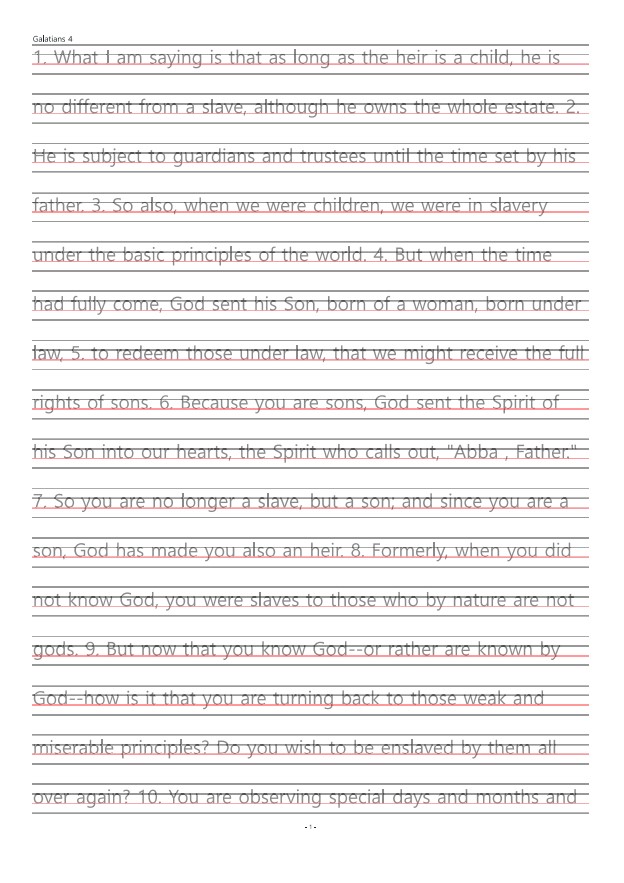 Galatians 4
1. What I am saying is that as long as the heir is a child, he is
no different from a slave, although he owns the whole estate. 2.
He is subject to guardians and trustees until the time set by his
father. 3. So also, when we were children, we were in slavery
under the basic principles of the world. 4. But when the time
had fully come, God sent his Son, born of a woman, born under
law, 5. to redeem those under law, that we might receive the full
rights of sons. 6. Because you are sons, God sent the Spirit of
his Son into our hearts, the Spirit who calls out, "Abba , Father."
7. So you are no longer a slave, but a son; and since you are a
son, God has made you also an heir. 8. Formerly, when you did
not know God, you were slaves to those who by nature are not
gods. 9. But now that you know God--or rather are known by
God--how is it that you are turning back to those weak and
miserable principles? Do you wish to be enslaved by them all
over again? 10. You are observing special days and months and
- 1 -